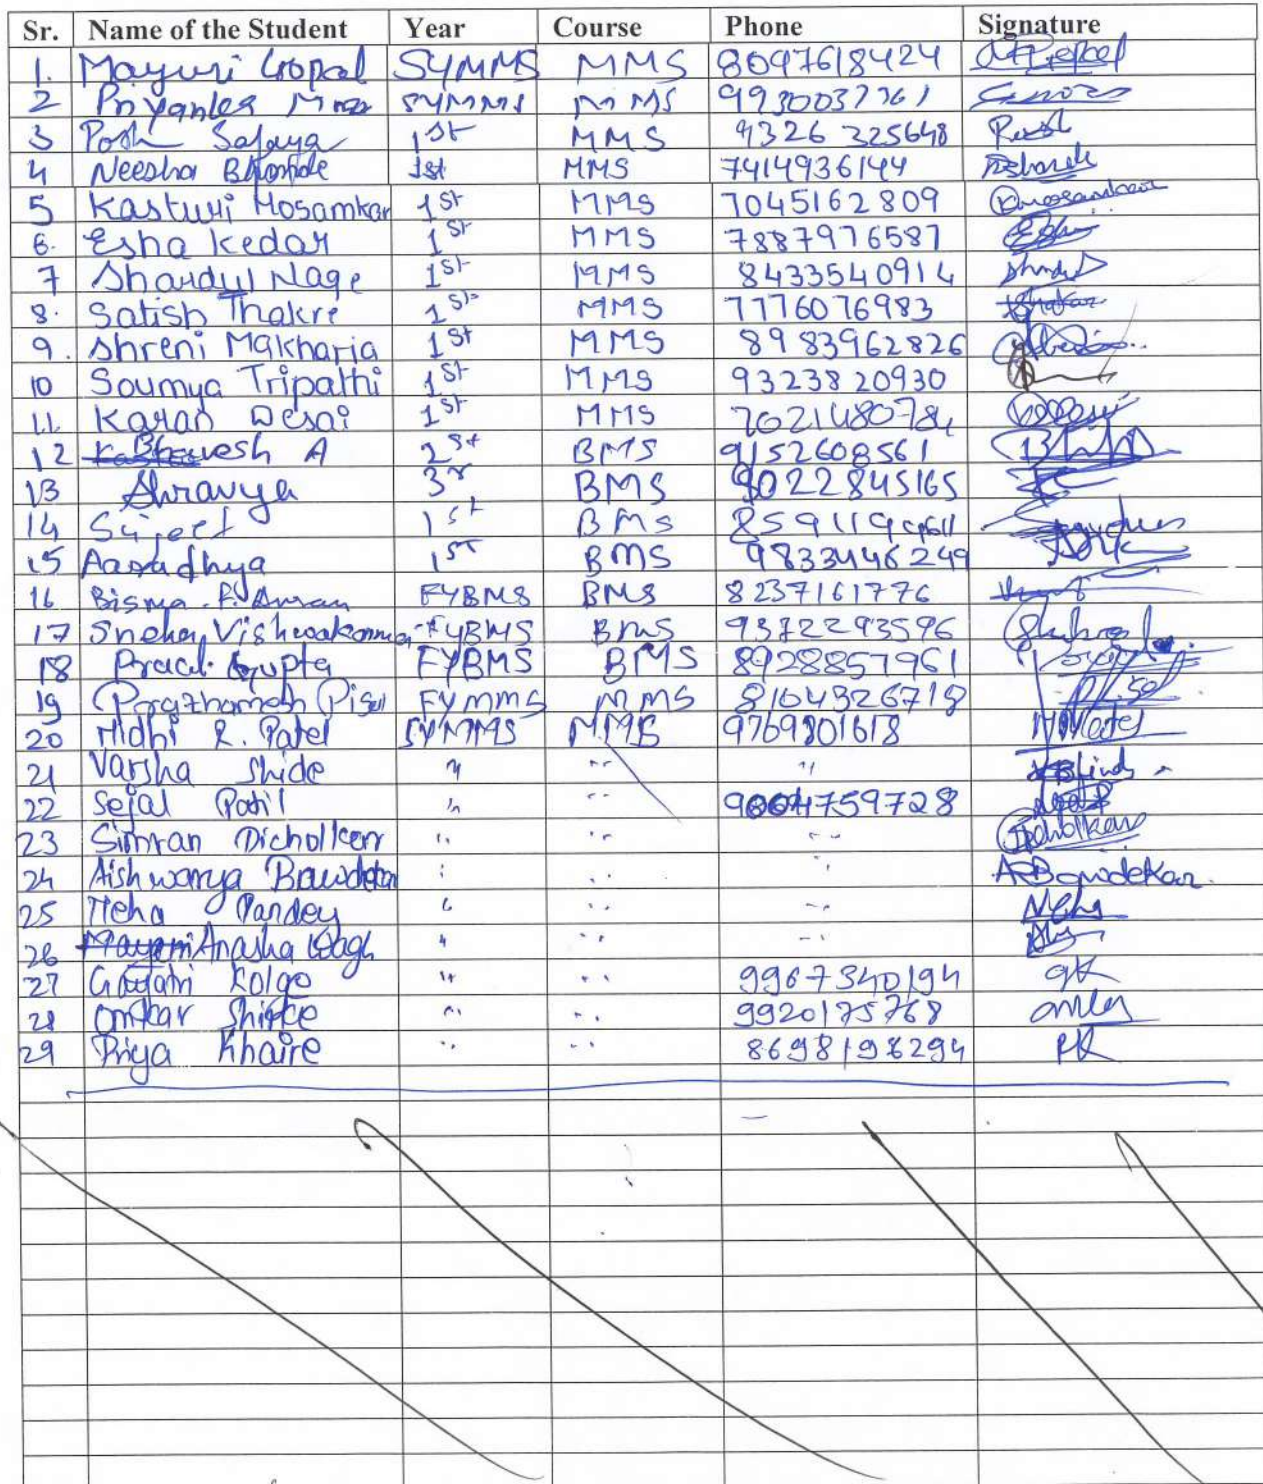 Sr. Name of the Student Year Course Phone Signature
1. Mayuri Gopal SYMMS MMS 8097618424
2 Priyanka SYMMS MMS
3 Posh 1st MMS 9326 325648 Posh
4 Neesha Bhonde 1st MMS 7414936144
5 Kasturi Mosamkar 1st MMS 7045162809 Kmosamkar
6. Esha Kedar 1st MMS 7887976587
7 Shardul Nage 1st MMS 8433540914
8. Satish Thakre 1st MMS 7776076983
9. Shreni Makharia 1st MMS 8983962826
10 Soumya Tripathi 1st MMS 9323820930
11. Karan Desai 1st MMS 7021480784
12 Bhavesh A 2st BMS 9152608561
13 Shravya 3r BMS 9022845165
14 Sujeet 1st BMS
15 Aaradhya 1st BMS 9833446249
16 Bisma FYBMS BMS 8237161776
17 Sneha Vishwakarma FYBMS BMS 9372293596
18 Gupta FYBMS BMS 8928857961
19 FYMMS MMS 8104326718
20 Nidhi R. Patel SYMMS MMS 9769801618 NPatel
21 Varsha Shide " " "
22 Sejal Patil " " 9004759728
23 Simran Dicholkar " " " Dicholkar
24 Aishwarya " " " ABawdekar
25 Neha Pandey " " " Neha
26 Anasha Wagh " " "
27 Gayatri Kolge " " 9967340194 GK
28 Omkar Shirke " " 9920175768
29 Priya Khaire " " 8698198294 PK